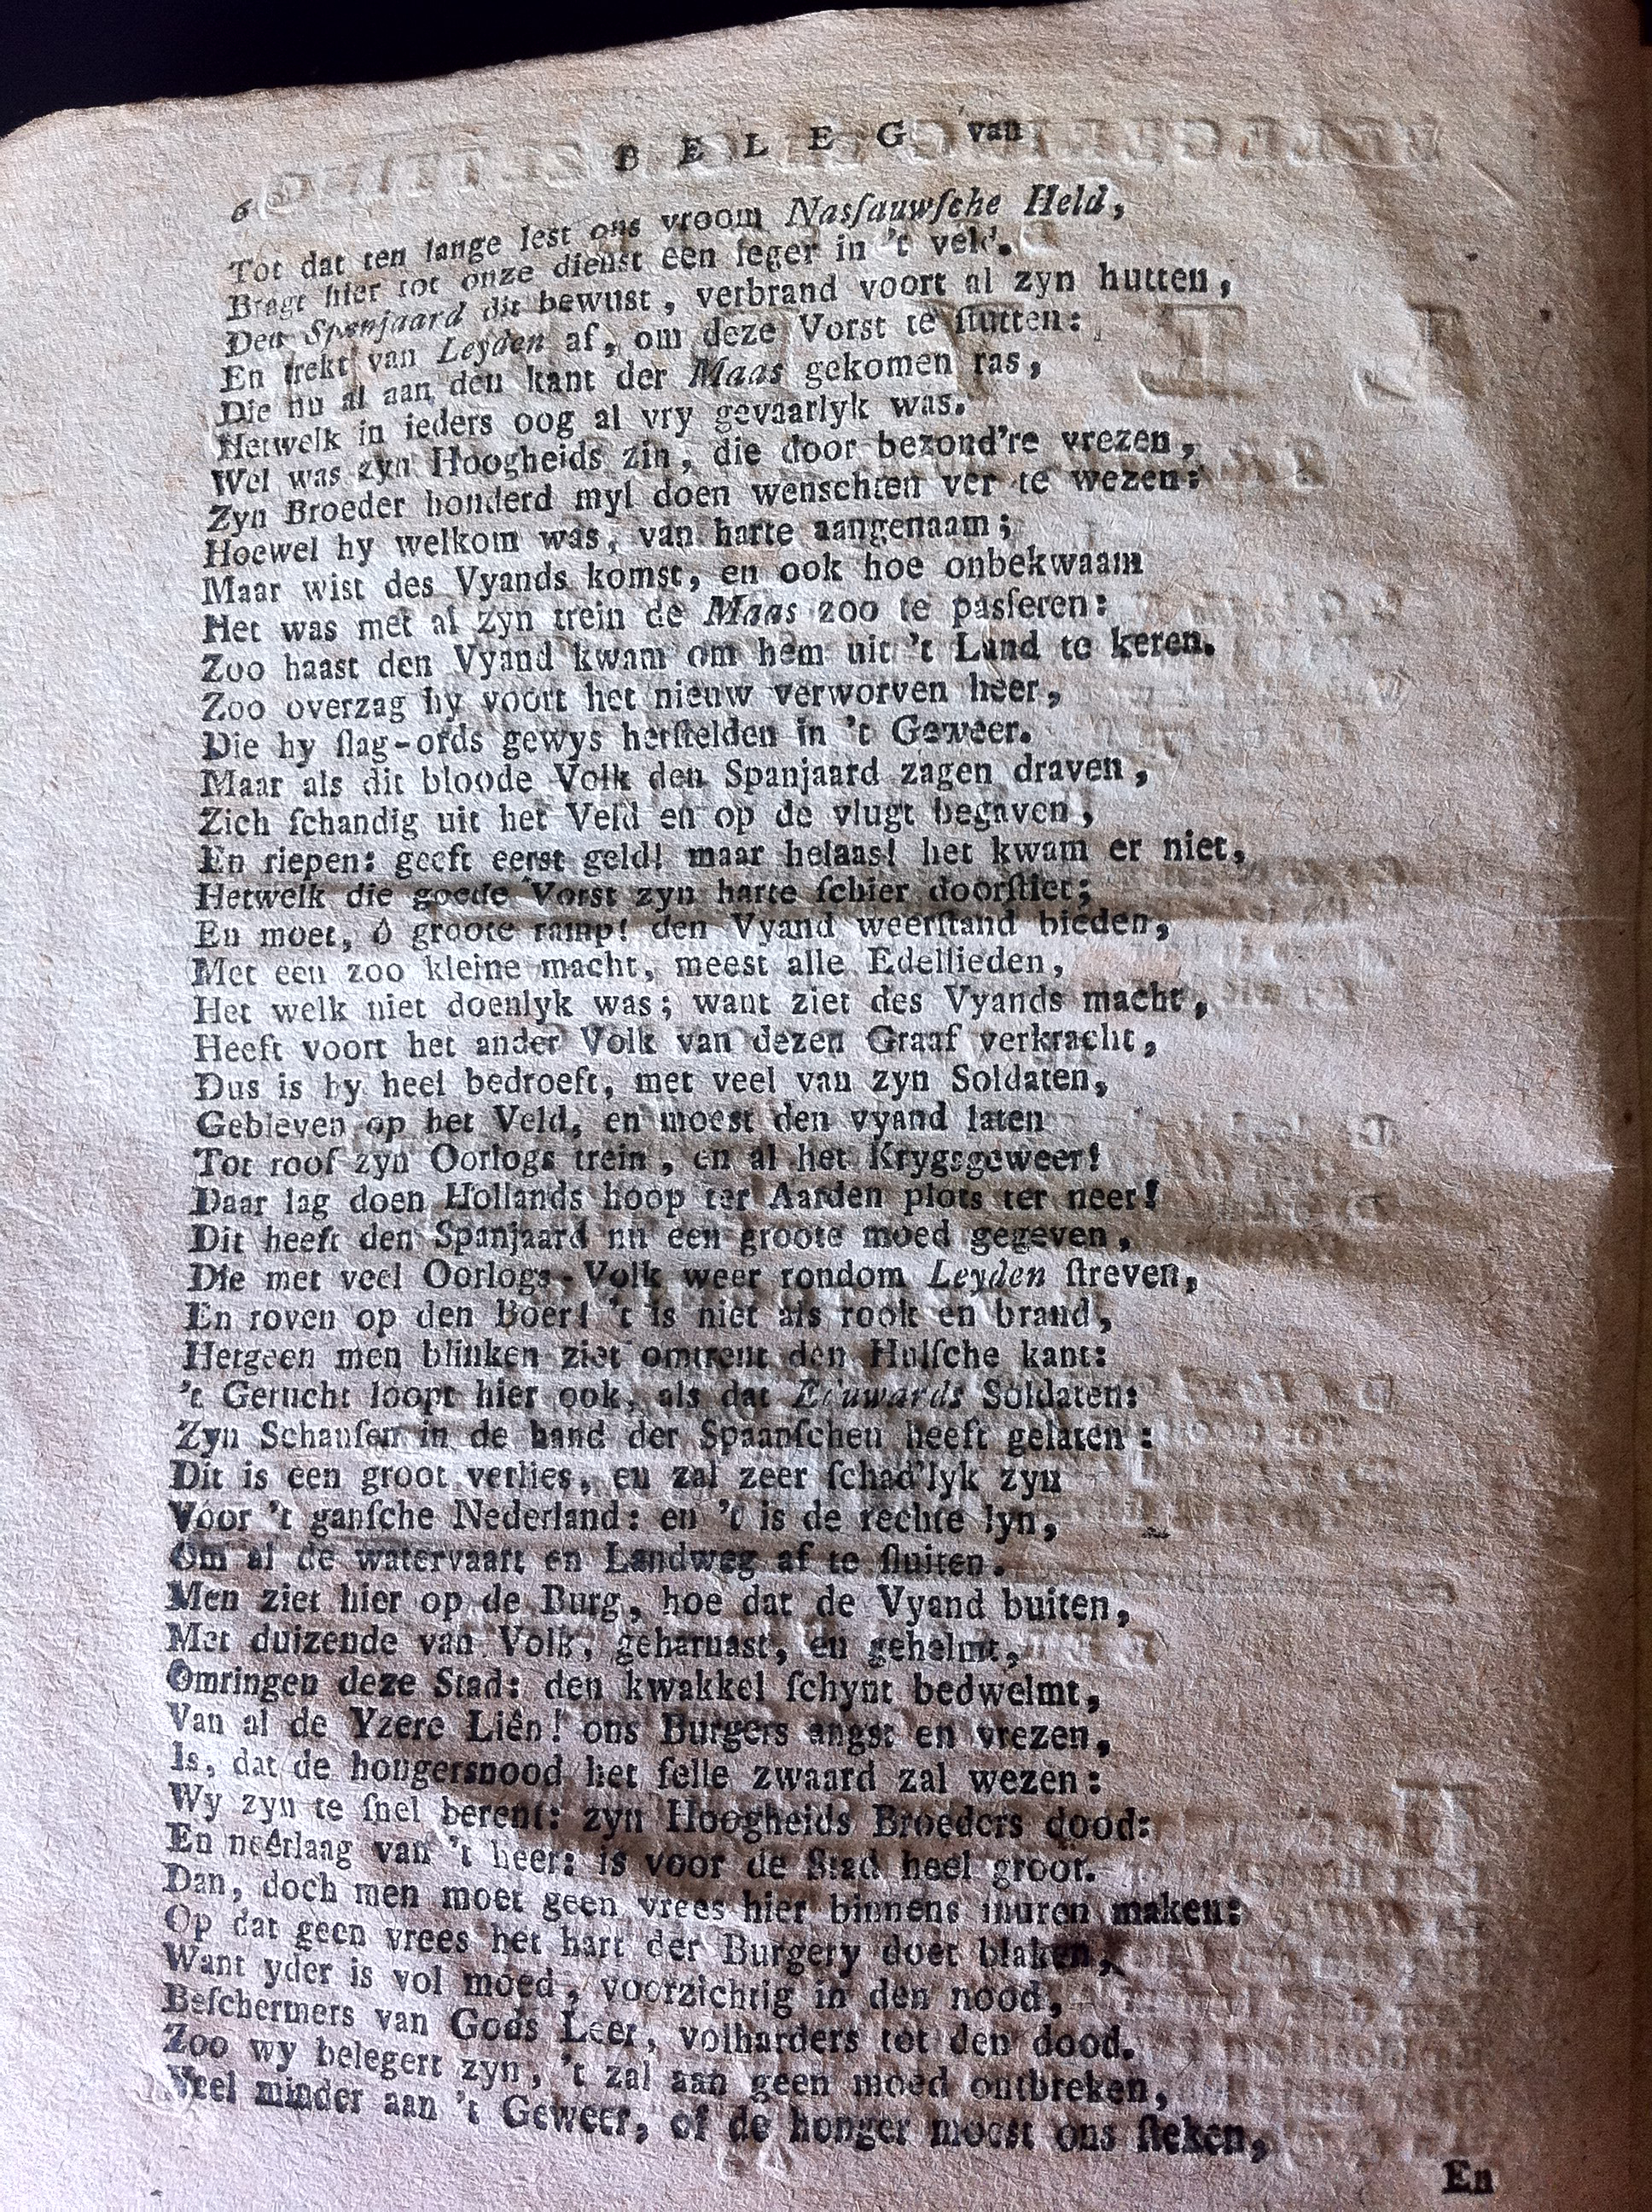 6 BELEG van
Tot dat ten lange lest ons vroom Nasſauwſche Held,
Bragt hier tot onze dienst een leger in 't veld.
Den Spanjaard dit bewust, verbrand voort al zyn hutten,
En trekt van Leyden af, om deze Vorst te ſtutten:
Die nu al aan den kant der Maas gekomen ras,
Hetwelk in ieders oog al vry gevaarlyk was.
Wel was zyn Hoogheids zin, die door bezond're vrezen,
Zyn Broeder honderd myl doen wenschten ver te wezen:
Hoewel hy welkom was, van harte aangenaam;
Maar wist des Vyands komst, en ook hoe onbekwaam
Het was met al zyn trein de Maas zoo te pasſeren:
Zoo haast den Vyand kwam om hem uit 't Land te keren.
Zoo overzag hy voort het nieuw verworven heer,
Die hy ſlag-ords gewys herſtelden in 't Geweer.
Maar als dit bloode Volk den Spanjaard zagen draven,
Zich ſchandig uit het Veld en op de vlugt begaven,
En riepen: geeft eerst geld! maar helaas! het kwam er niet,
Hetwelk die goede Vorst zyn harte ſchier doorſtiet;
En moet, ô groote ramp! den Vyand weerſtand bieden,
Met een zoo kleine macht, meest alle Edellieden,
Het welk niet doenlyk was; want ziet des Vyands macht,
Heeft voort het ander Volk van dezen Graaf verkracht,
Dus is hy heel bedroeft, met veel van zyn Soldaten,
Gebleven op het Veld, en moest den vyand laten
Tot roof zyn Oorlogs trein, en al het Krygsgeweer!
Daar lag doen Hollands hoop ter Aarden plots ter neer!
Dit heeft den Spanjaard nu een groote moed gegeven,
Die met veel Oorlogs-Volk weer rondom Leyden ſtreven,
En roven op den Boer! 't is niet als rook en brand,
Hetgeen men blinken ziet omtrent den Hulſche kant:
't Gerucht loopt hier ook, als dat Eduwards Soldaten:
Zyn Schanſen in de hand der Spaanſchen heeft gelaten:
Dit is een groot verlies, en zal zeer ſchad'lyk zyn
Voor 't ganſche Nederland: en 't is de rechte lyn,
Om al de watervaart en Landweg af te ſluiten.
Men ziet hier op de Burg, hoe dat de Vyand buiten,
Met duizende van Volk, geharnast, en gehelmt,
Omringen deze Stad: den kwakkel ſchynt bedwelmt,
Van al de Yzere Liên! ons Burgers angst en vrezen,
Is, dat de hongersnood het felle zwaard zal wezen:
Wy zyn te ſnel berent: zyn Hoogheids Broeders dood:
En neêrlaag van 't heer: is voor de Stad heel groot.
Dan, doch men moet geen vrees hier binnens muren maken:
Op dat geen vrees het hart der Burgery doet blaken,
Want yder is vol moed, voorzichtig in den nood,
Beſchermers van Gods Leer, volharders tot den dood.
Zoo wy belegert zyn, 't zal aan geen moed ontbreken,
Veel minder aan 't Geweer, of de honger moest ons ſteken,
En